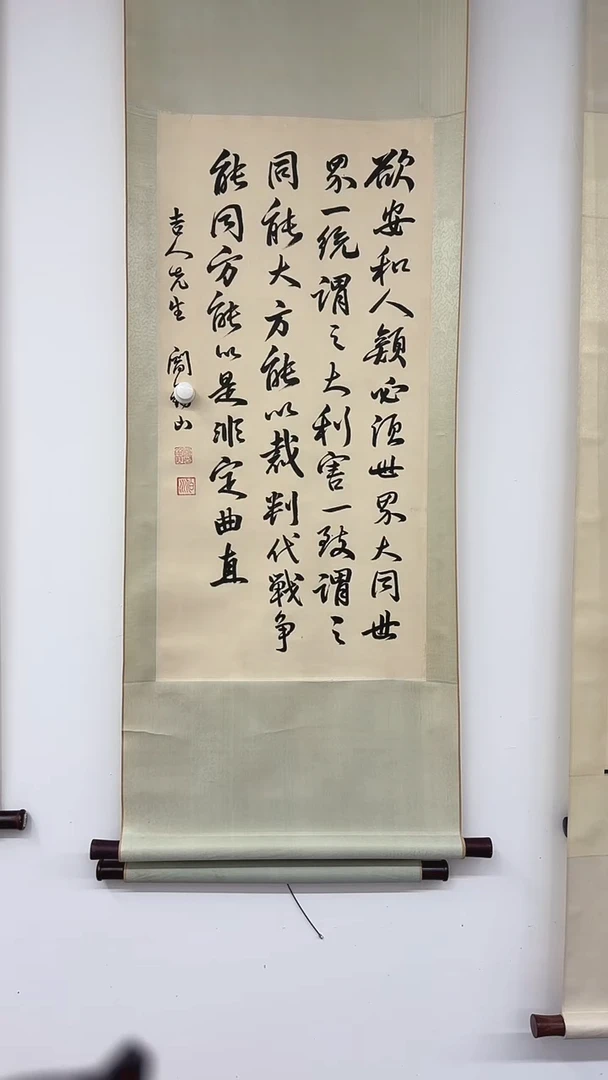 欲安和人類必須世界大同世
界一統謂之大利害一致謂之
同能大方能以裁判代戰争
能同方能以是非定曲直
吉人先生 閻錫山